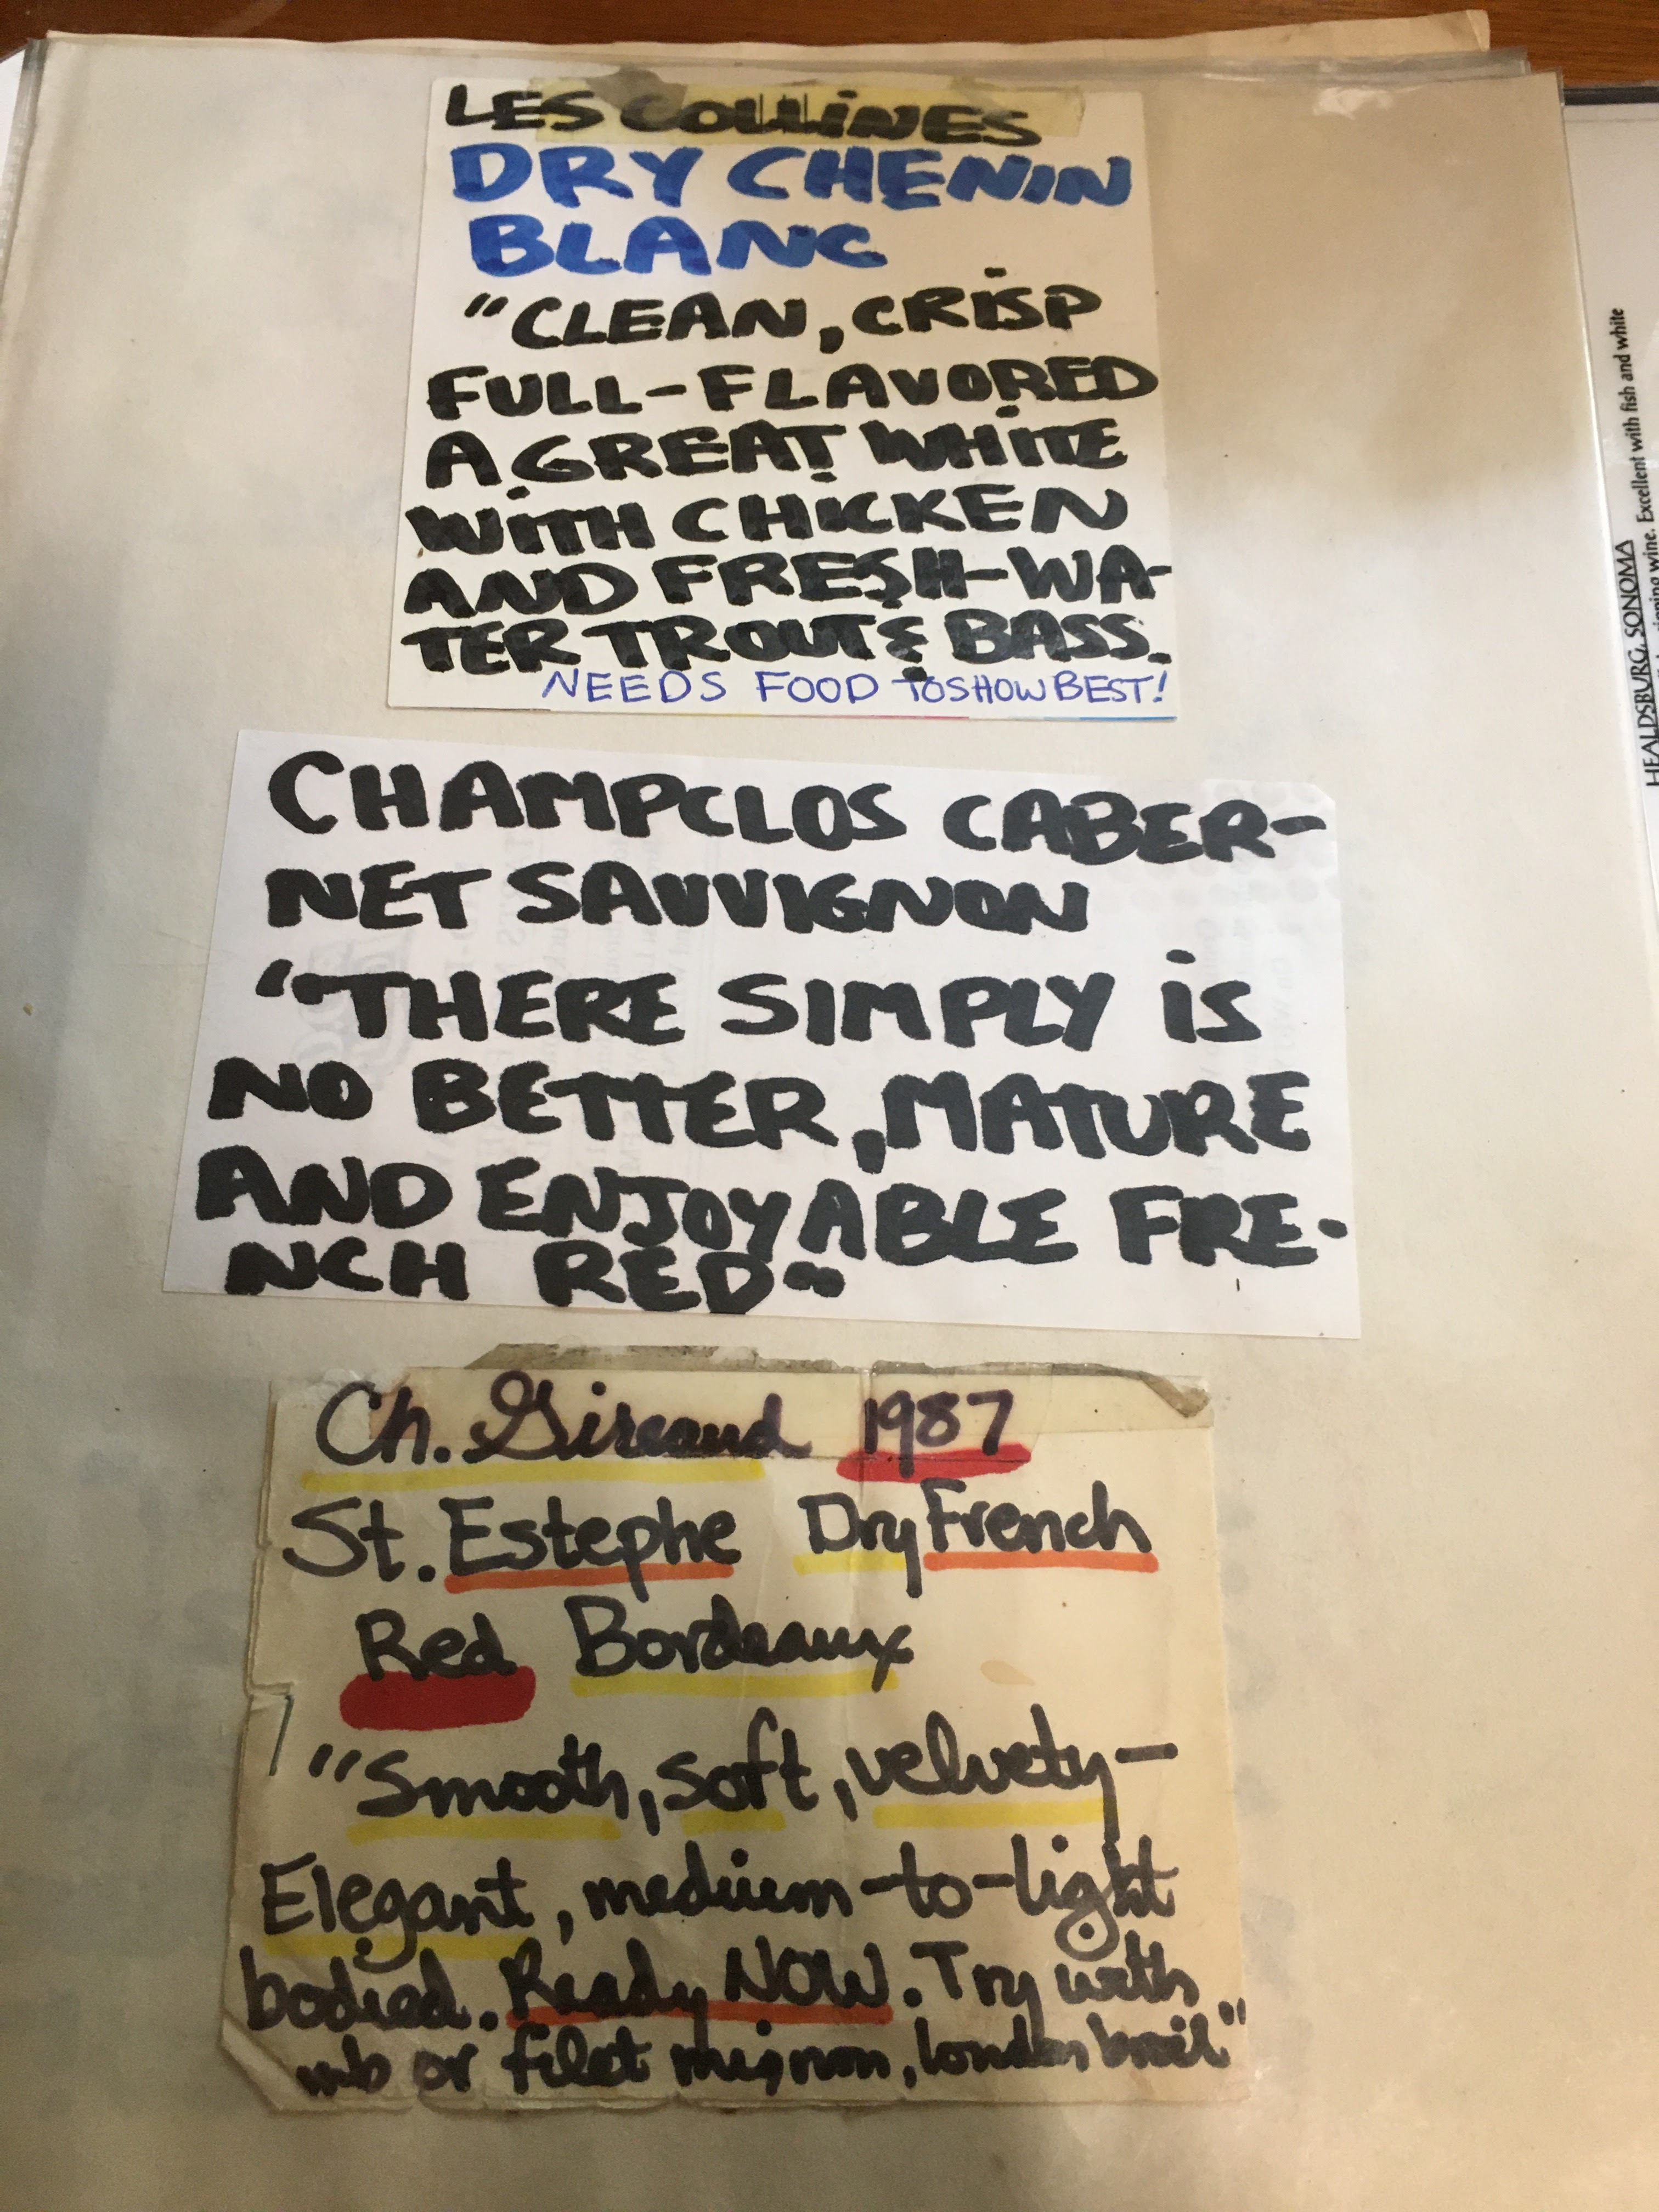 LES COLLiNES
DRY CHENIN
BLANC
"CLEAN, CRiSP
FULL-FLAVORED
A GREAT WHiTE
WiTH CHiCKEN
AND FRESH-WA-
TER TROUT & BASS.
NEEDS FOOD TO SHOW BEST!
CHAMPCLOS CABER-
NET SAUVIGNON
"THERE SIMPLY iS
NO BETTER, MATURE
AND ENJOYABLE FRE-
NCH RED"
Ch. Gireaud 1987
St. Estephe Dry French
Red Bordeaux
"Smooth, soft, velvety-
Elegant, medium-to-light
bodied. Ready NOW. Try with
or filet mignon, london broil"
HEALDSBURG, SONOMA
wine. Excellent with fish and white